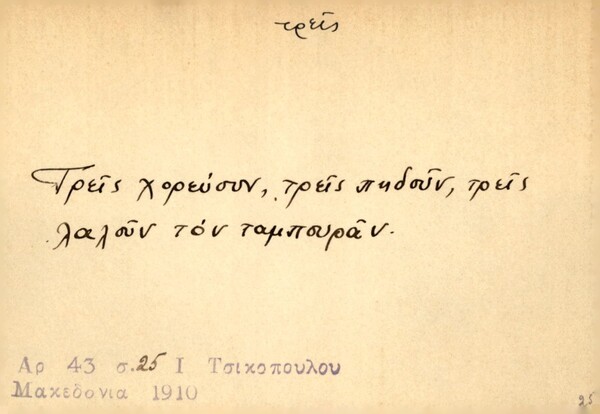 τρεῖς
Τρεῖς χορεύσυν, τρεῖς πηδοῦν, τρεῖς
λαλοῦν τόν ταμπουρᾶν.
Αρ 43 σ.25 Ι Τσικοπουλου
Μακεδονια 1910
25